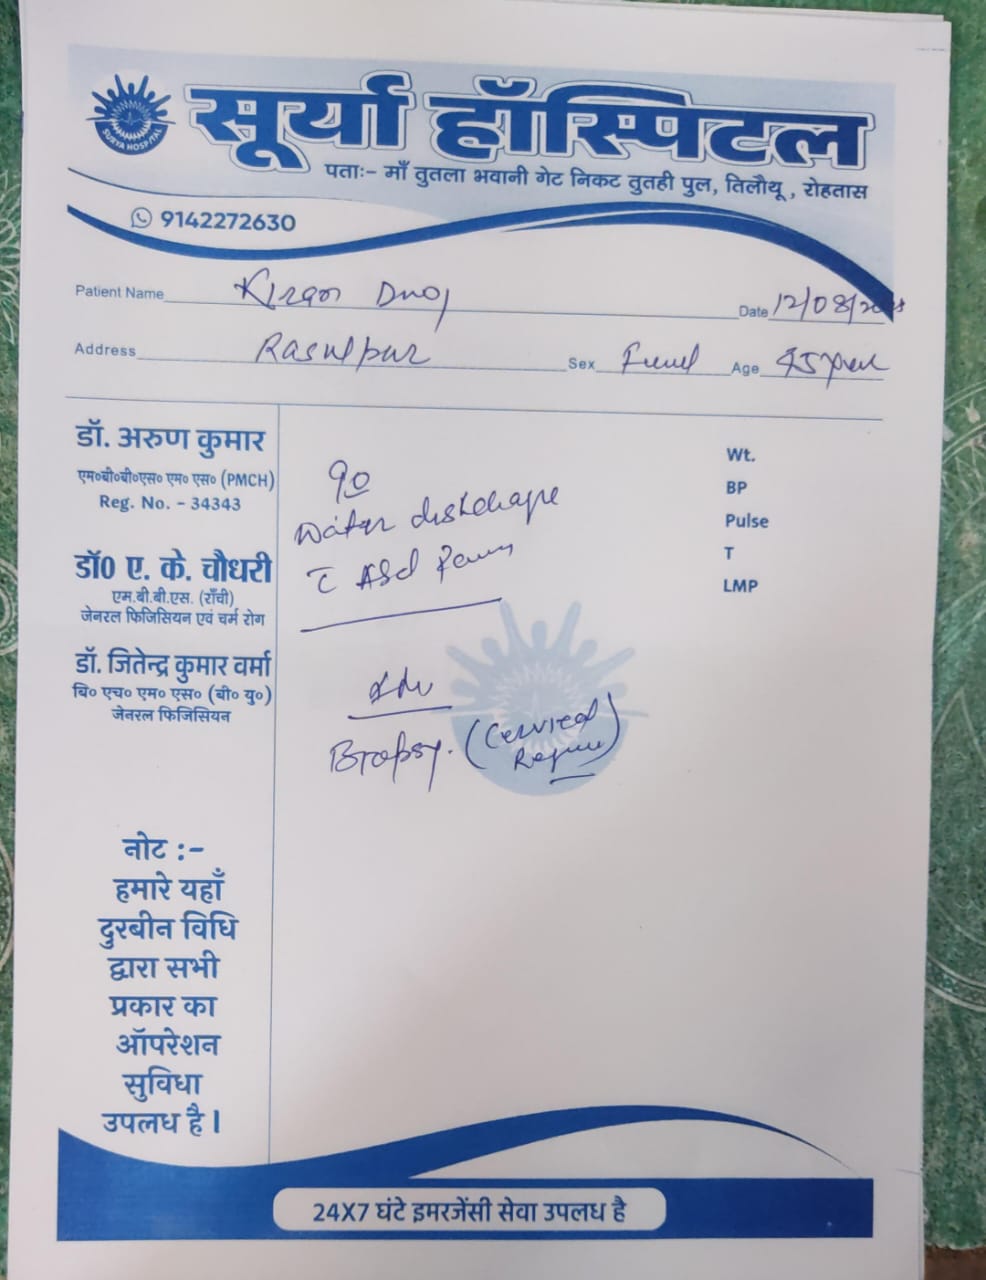 सूर्या हॉस्पिटल
SURYA HOSPITAL
पताः- माँ तुतला भवानी गेट निकट तुतही पुल, तिलौथू , रोहतास
9142272630
Patient Name Kiran
Date 12/08/
Address Rasulpur Sex Age 45
डॉ. अरुण कुमार
एम०बी०बी०एस० एम० एस० (PMCH)
Reg. No. - 34343
डॉ0 ए. के. चौधरी
एम.बी.बी.एस. (राँची)
जेनरल फिजिसियन एवं चर्म रोग
डॉ. जितेन्द्र कुमार वर्मा
बि० एच० एम० एस० (बी० यु०)
जेनरल फिजिसियन
नोट :-
हमारे यहाँ
दुरबीन विधि
द्वारा सभी
प्रकार का
ऑपरेशन
सुविधा
उपलध है।
Water
Biopsy. (Cervical
Wt.
BP
Pulse
T
LMP
24X7 घंटे इमरजेंसी सेवा उपलध है